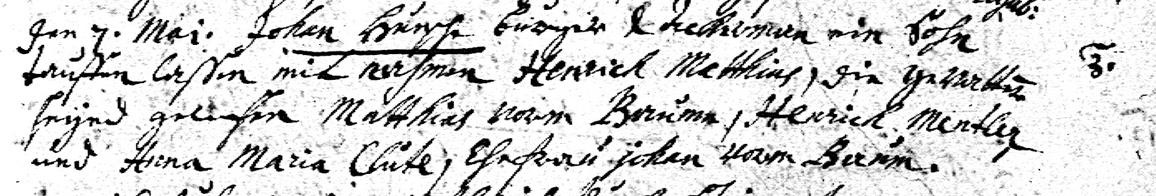 den 7. Mai. Johan Hursche burger & Ackerman ein Sohn
tauffen lassen mit nahmen Henrich Matthias, die gevattern
seynd gewesen Matthias vorm Baum, Henrich Mentler
und Anna Maria Clute, Ehefrau johan vorm Baum.
3.